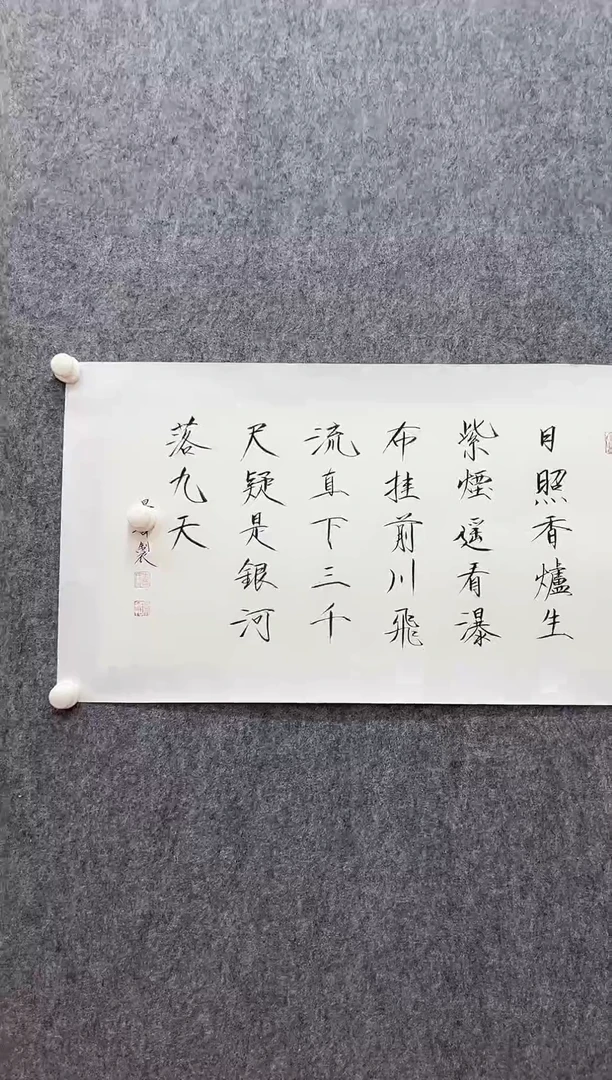 日照香爐生
紫煙遥看瀑
布挂前川飛
流直下三千
尺疑是銀河
落九天
製